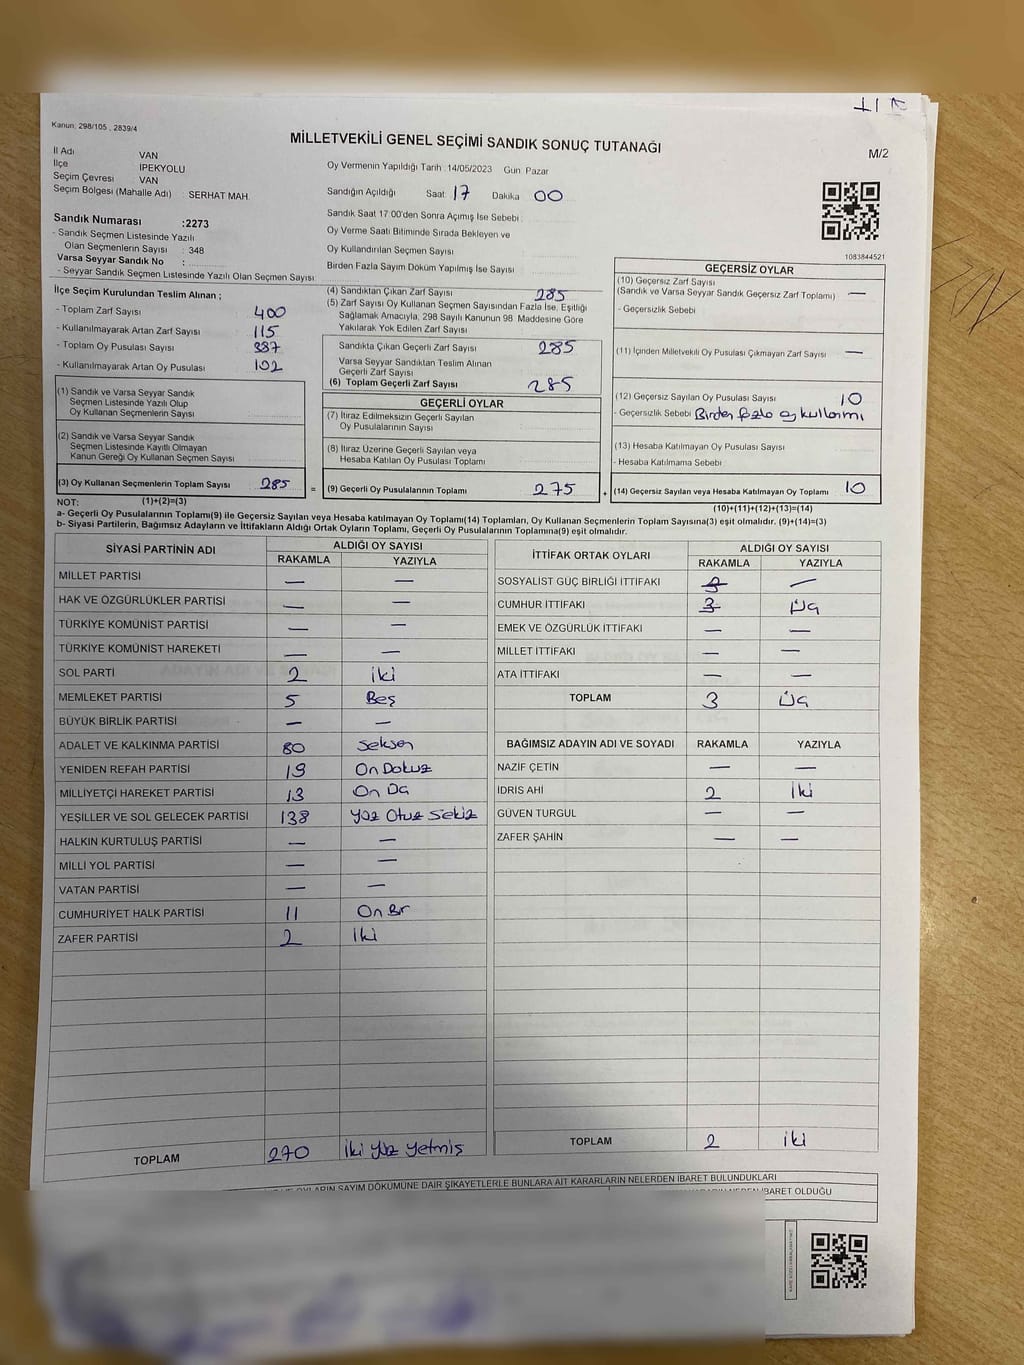 Kanun: 298/105 , 2839/4
MİLLETVEKİLİ GENEL SEÇİMİ SANDIK SONUÇ TUTANAĞI
M/2
İl Adı VAN
İlçe İPEKYOLU
Seçim Çevresi VAN
Seçim Bölgesi (Mahalle Adı) : SERHAT MAH.
Oy Vermenin Yapıldığı Tarih :14/05/2023 Gün: Pazar
Sandığın Açıldığı Saat: 17 Dakika 00
Sandık Saat 17:00'den Sonra Açımış İse Sebebi :
Oy Verme Saati Bitiminde Sırada Bekleyen ve
Oy Kullandırılan Seçmen Sayısı
Birden Fazla Sayım Döküm Yapılmış İse Sayısı
Sandık Numarası :2273
- Sandık Seçmen Listesinde Yazılı
Olan Seçmenlerin Sayısı : 348
Varsa Seyyar Sandık No :
- Seyyar Sandık Seçmen Listesinde Yazılı Olan Seçmen Sayısı:
1083844521
İlçe Seçim Kurulundan Teslim Alınan ;
- Toplam Zarf Sayısı 400
- Kullanılmayarak Artan Zarf Sayısı 115
- Toplam Oy Pusulası Sayısı 387
- Kullanılmayarak Artan Oy Pusulası 102
(1) Sandık ve Varsa Seyyar Sandık
Seçmen Listesinde Yazılı Olup
Oy Kullanan Seçmenlerin Sayısı
(2) Sandık ve Varsa Seyyar Sandık
Seçmen Listesinde Kayıtlı Olmayan
Kanun Gereği Oy Kullanan Seçmen Sayısı
(3) Oy Kullanan Seçmenlerin Toplam Sayısı 285
(4) Sandıktan Çıkan Zarf Sayısı 285
(5) Zarf Sayısı Oy Kullanan Seçmen Sayısından Fazla İse, Eşitliği
Sağlamak Amacıyla, 298 Sayılı Kanunun 98. Maddesine Göre
Yakılarak Yok Edilen Zarf Sayısı
Sandıkta Çıkan Geçerli Zarf Sayısı 285
Varsa Seyyar Sandıktan Teslim Alınan
Geçerli Zarf Sayısı
(6) Toplam Geçerli Zarf Sayısı 285
GEÇERLİ OYLAR
(7) İtiraz Edilmeksizin Geçerli Sayılan
Oy Pusulalarının Sayısı
(8) İtiraz Üzerine Geçerli Sayılan veya
Hesaba Katılan Oy Pusulası Toplamı
= (9) Geçerli Oy Pusulalarının Toplamı 275
GEÇERSİZ OYLAR
(10) Geçersiz Zarf Sayısı
(Sandık ve Varsa Seyyar Sandık Geçersiz Zarf Toplamı) —
- Geçersizlik Sebebi
(11) İçinden Milletvekili Oy Pusulası Çıkmayan Zarf Sayısı —
(12) Geçersiz Sayılan Oy Pusulası Sayısı 10
- Geçersizlik Sebebi Birden fazla oy kullanımı
(13) Hesaba Katılmayan Oy Pusulası Sayısı
- Hesaba Katılmama Sebebi
+ (14) Geçersiz Sayılan veya Hesaba Katılmayan Oy Toplamı 10
NOT: (1)+(2)=(3) (10)+(11)+(12)+(13)=(14)
a- Geçerli Oy Pusulalarının Toplamı(9) ile Geçersiz Sayılan veya Hesaba katılmayan Oy Toplamı(14) Toplamları, Oy Kullanan Seçmenlerin Toplam Sayısına(3) eşit olmalıdır. (9)+(14)=(3)
b- Siyasi Partilerin, Bağımsız Adayların ve İttifakların Aldığı Ortak Oyların Toplamı, Geçerli Oy Pusulalarının Toplamına(9) eşit olmalıdır.
SİYASİ PARTİNİN ADI ALDIĞI OY SAYISI
RAKAMLA YAZIYLA
MİLLET PARTİSİ — —
HAK VE ÖZGÜRLÜKLER PARTİSİ — —
TÜRKİYE KOMÜNİST PARTİSİ — —
TÜRKİYE KOMÜNİST HAREKETİ — —
SOL PARTİ 2 iki
MEMLEKET PARTİSİ 5 Beş
BÜYÜK BİRLİK PARTİSİ — —
ADALET VE KALKINMA PARTİSİ 80 seksen
YENİDEN REFAH PARTİSİ 19 On Dokuz
MİLLİYETÇİ HAREKET PARTİSİ 13 On Üç
YEŞİLLER VE SOL GELECEK PARTİSİ 138 yüz Otuz Sekiz
HALKIN KURTULUŞ PARTİSİ — —
MİLLİ YOL PARTİSİ — —
VATAN PARTİSİ — —
CUMHURİYET HALK PARTİSİ 11 On Bir
ZAFER PARTİSİ 2 İki
TOPLAM 270 iki yüz yetmiş
İTTİFAK ORTAK OYLARI ALDIĞI OY SAYISI
RAKAMLA YAZIYLA
SOSYALİST GÜÇ BİRLİĞİ İTTİFAKI —
CUMHUR İTTİFAKI 3 Üç
EMEK VE ÖZGÜRLÜK İTTİFAKI — —
MİLLET İTTİFAKI — —
ATA İTTİFAKI — —
TOPLAM 3 Üç
BAĞIMSIZ ADAYIN ADI VE SOYADI RAKAMLA YAZIYLA
NAZİF ÇETİN — —
İDRİS AHİ 2 İki
GÜVEN TURGUL — —
ZAFER ŞAHİN — —
TOPLAM 2 iki
OYLARIN SAYIM DÖKÜMÜNE DAİR ŞİKAYETLERLE BUNLARA AİT KARARLARIN NELERDEN İBARET BULUNDUKLARI
İBARET OLDUĞU